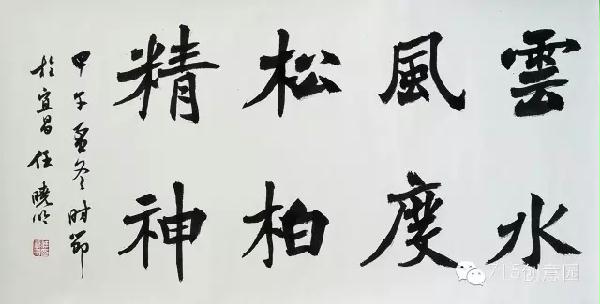 雲水
風度
松柏
精神
甲午孟冬時節
於宜昌任曉明
715创意园